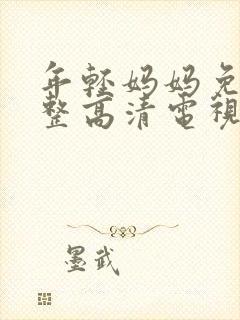 年輕妈妈免
整高清電視
墨武